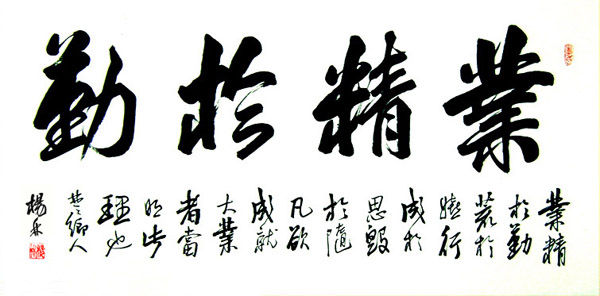 業精於勤
業精
於勤
荒於
嬉行
成於
思毀
於隨
凡欲
成就
大業
者當
明此
理也
楚鄉人
楊